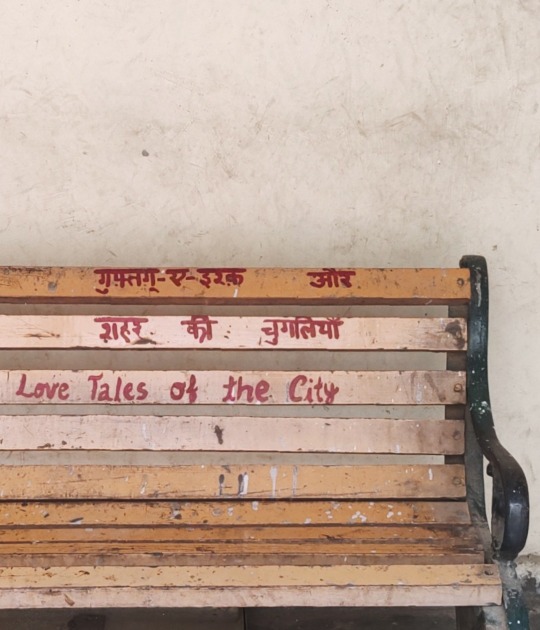 गुफ़्तगू-ए-इश्क़ और
शहर की चुगलियाँ
Love Tales of the City